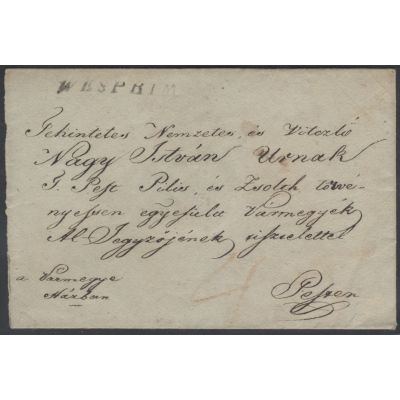 WESPRIM
Tekintetes Nemzetes, és Vitézlő
Nagy István Urnak
T. Pest Pilis, és Zsolth törvé-
nyessen egyesült Vármegyék
Al-Jegyzőjének tisztelettel
a Vármegye
Házban
Pesten